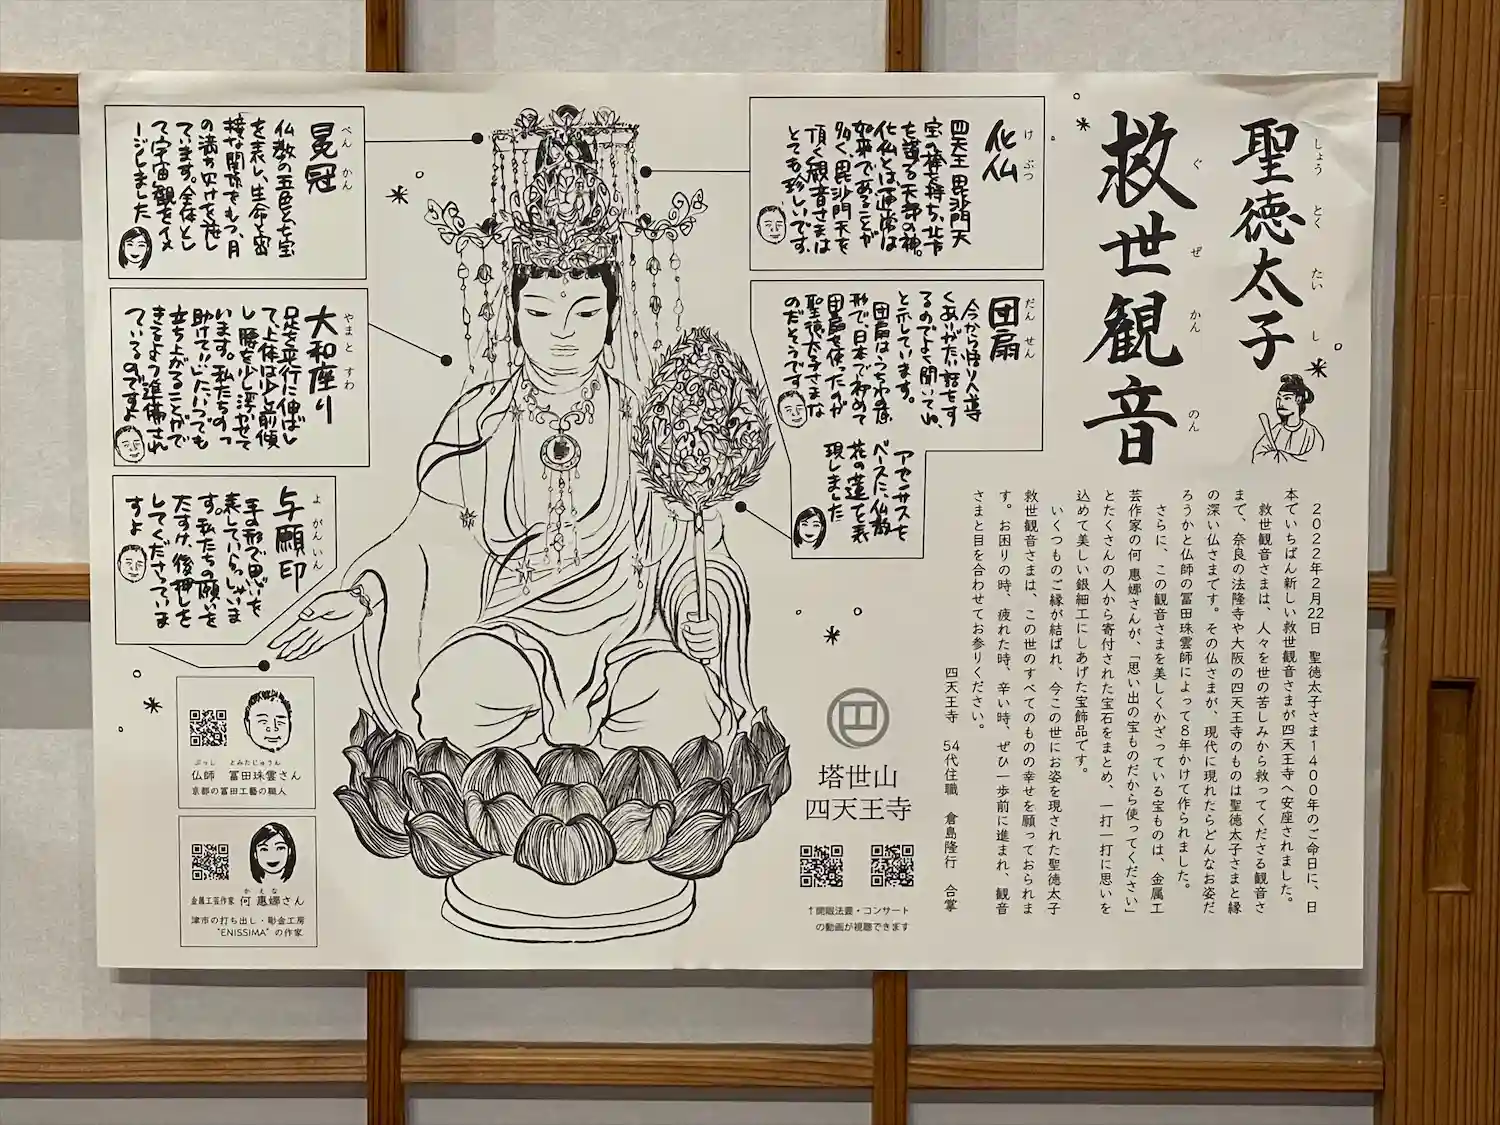 聖徳太子
しょうとくたいし
救世観音
ぐぜかんのん
２０２２年２月22日　聖徳太子さま１４００年のご命日に、日
本でいちばん新しい救世観音さまが四天王寺へ安座されました。
救世観音さまは、人々を世の苦しみから救ってくださる観音さ
まで、奈良の法隆寺や大阪の四天王寺のものは聖徳太子さまと縁
の深い仏さまです。その仏さまが、現代に現れたらどんなお姿だ
ろうかと仏師の冨田珠雲師によって８年かけて作られました。
さらに、この観音さまを美しくかざっている宝ものは、金属工
芸作家の何 惠娜さんが、「思い出の宝ものだから使ってください」
とたくさんの人から寄付された宝石をまとめ、一打一打に思いを
込めて美しい銀細工にしあげた宝飾品です。
いくつものご縁が結ばれ、今この世にお姿を現された聖徳太子
救世観音さまは、この世のすべてのものの幸せを願っておられま
す。お困りの時、疲れた時、辛い時、ぜひ一歩前に進まれ、観音
さまと目を合わせてお参りください。
四天王寺　54代住職　倉島隆行　合掌
化仏
けぶつ
四天王 毘沙門天
宝の棒を持ち、北方
を護る天部の神。
化仏とは通常は
如来であることが
多く、毘沙門天を
頂く観音さまは
とても珍しいです。
団扇
だんせん
今から悟りへ導
くありがたい話をす
るのでよく聞いてね、
と示しています。
団扇はうちわの意
形で、日本で初めて
団扇を使ったのが
聖徳太子さまな
のだそうです
アカンサスを
ベースに、仏教
花の蓮で表
現しました
冕冠
べんかん
仏教の五色と七宝
を表し、生命と密
接な関係でもつ、月
の満ち欠けを施し
ています。全体とし
て宇宙観をイメ
ージしました
大和座り
やまとすわ
足を平行に伸ばし
て上体は少し前傾
し、腰を少し浮かせて
います。私たちのっ
助けてにいたいつでも
立ち上がることがで
きるよう準備され
ているのですよ
与願印
よがんいん
手の形で思いを
表していらっしゃいま
す。私たちの願いを
たすけ、後押しを
してくださっていま
すよ
ぶっし　とみたじゅうん
仏師　冨田珠雲さん
京都の冨田工藝の職人
かえな
金属工芸作家 何 惠娜さん
津市の打ち出し・彫金工房
“ENISSIMA” の作家
塔世山
四天王寺
↑開眼法要・コンサート
の動画が視聴できます